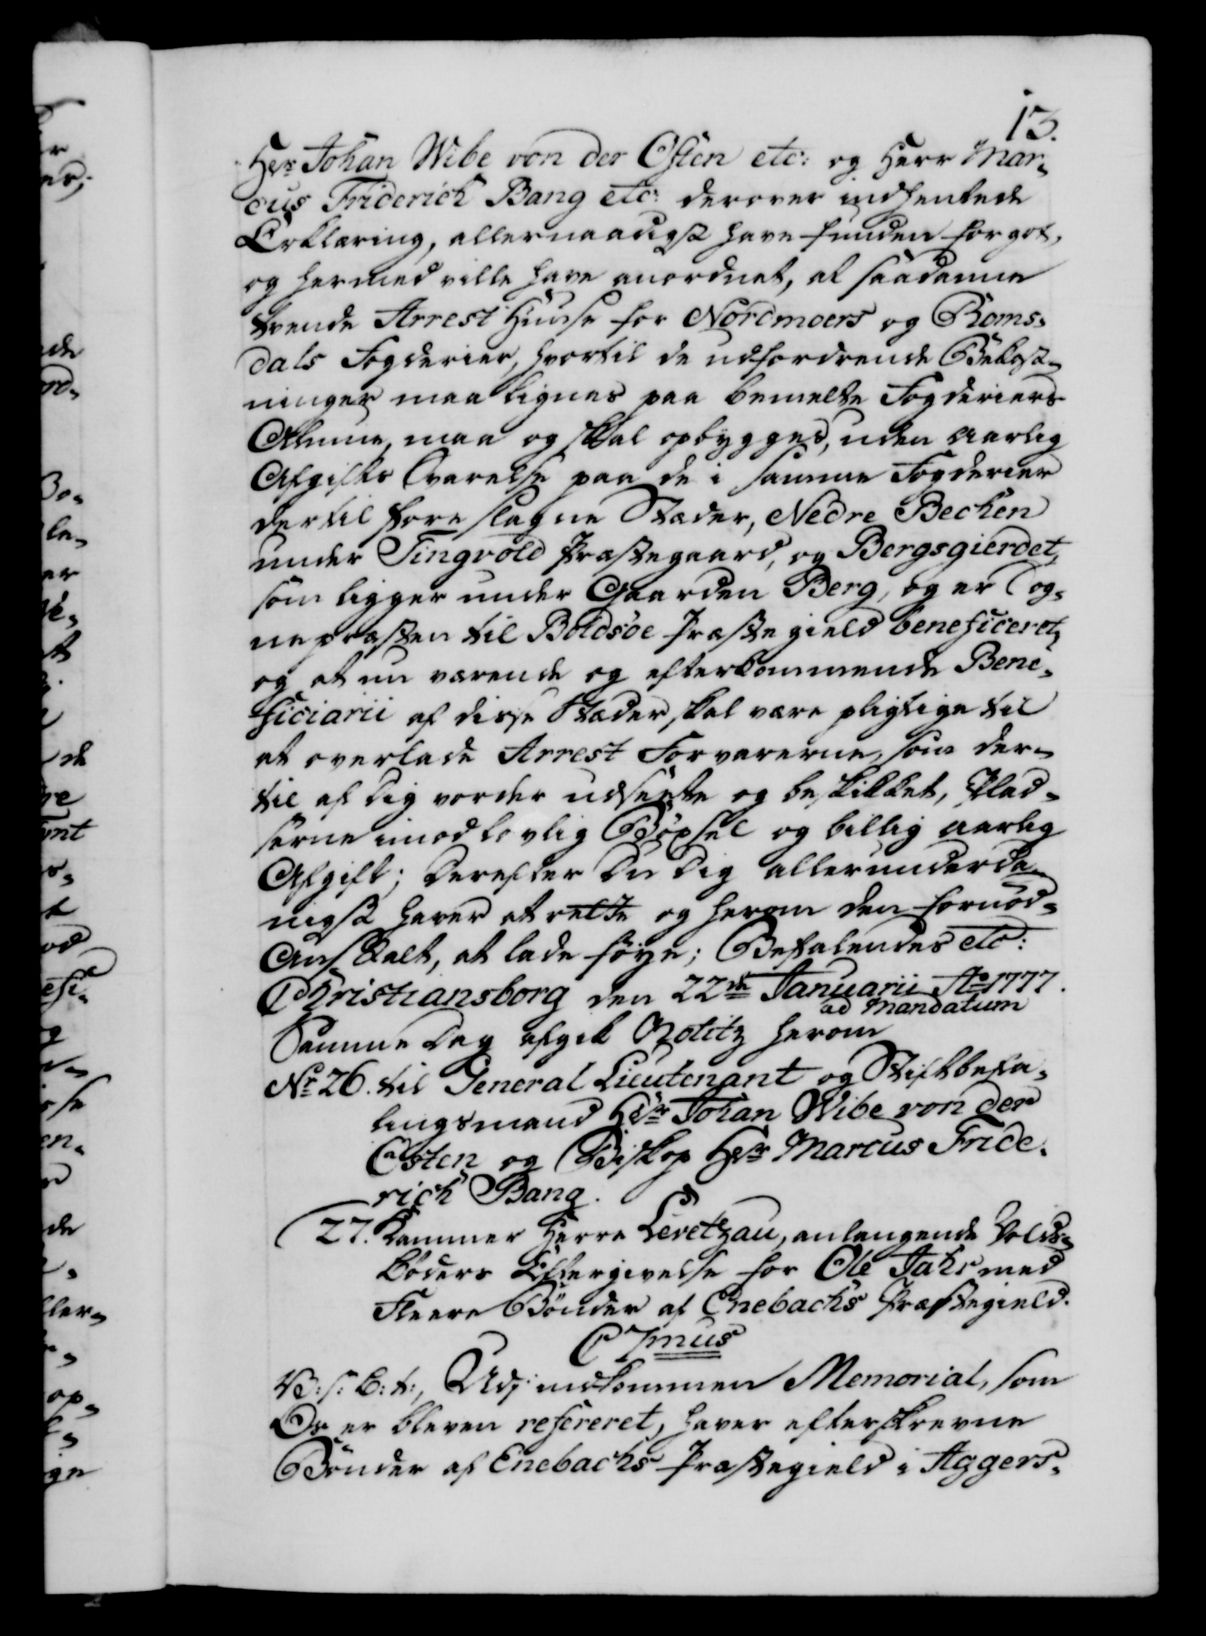 13.
Herr Johan Wibe von der Osten etc: og Herr Mar-
cus Friderich Bang etc: derover indhentede
Erklæring, allernaadigst have funden for got,
og hermed ville have anordnet, at saadanne
tvende Arrest Huuse for Nordmoers og Roms-
dals Fogderier, hvortil de udfordrende Bekost-
ninger maa lignes paa bemelte Fogderiers
Almue, maa og skal opbygges, uden aarlig
Afgifts Svarelse paa de i samme Fogderier
dertil foreslagne Stæder, Nedre Becken
under Tingvold Præstegaard, og Bergsgierdet,
som ligger under Gaarden Berg, og er Sog-
nepræsten til Boldsøe Præstegield beneficeret,
og at nu værende og efterkommende Bene-
ficiarii af disse Stæder, skal være pligtige til
at overlade Arrest Forvarerne, som der-
til af Dig vorder udseete og beskikket, Plad-
serne imod lovlig Bøxsel og billig aarlig
Afgift; Derefter Du Dig allerunderda-
nigst haver at rette og herom den fornød-
Anstalt, at lade føye; Befalendes etc:
Christiansborg den 22de Januarii Ao 1777.
ad Mandatum
Samme Dag afgik Notitz herom
No 26. til General Lieutenant og Stiftbefa-
lingsmand Herr Johan Wibe von der
Osten og Biskop Herr Marcus Fride-
rich Bang.
27. Kammer Herre Levetzau, anlangende Volds-
Bøders Eftergivelse for Ole Jahr med
Fleere Bønder af Enebachs Præstegield.
C 7mus
V: s: B: t:, Udj indkommen Memorial, som
Os er bleven refereret, haver efterskrevne
Bønder af Enebachs Præstegield i Aggers-